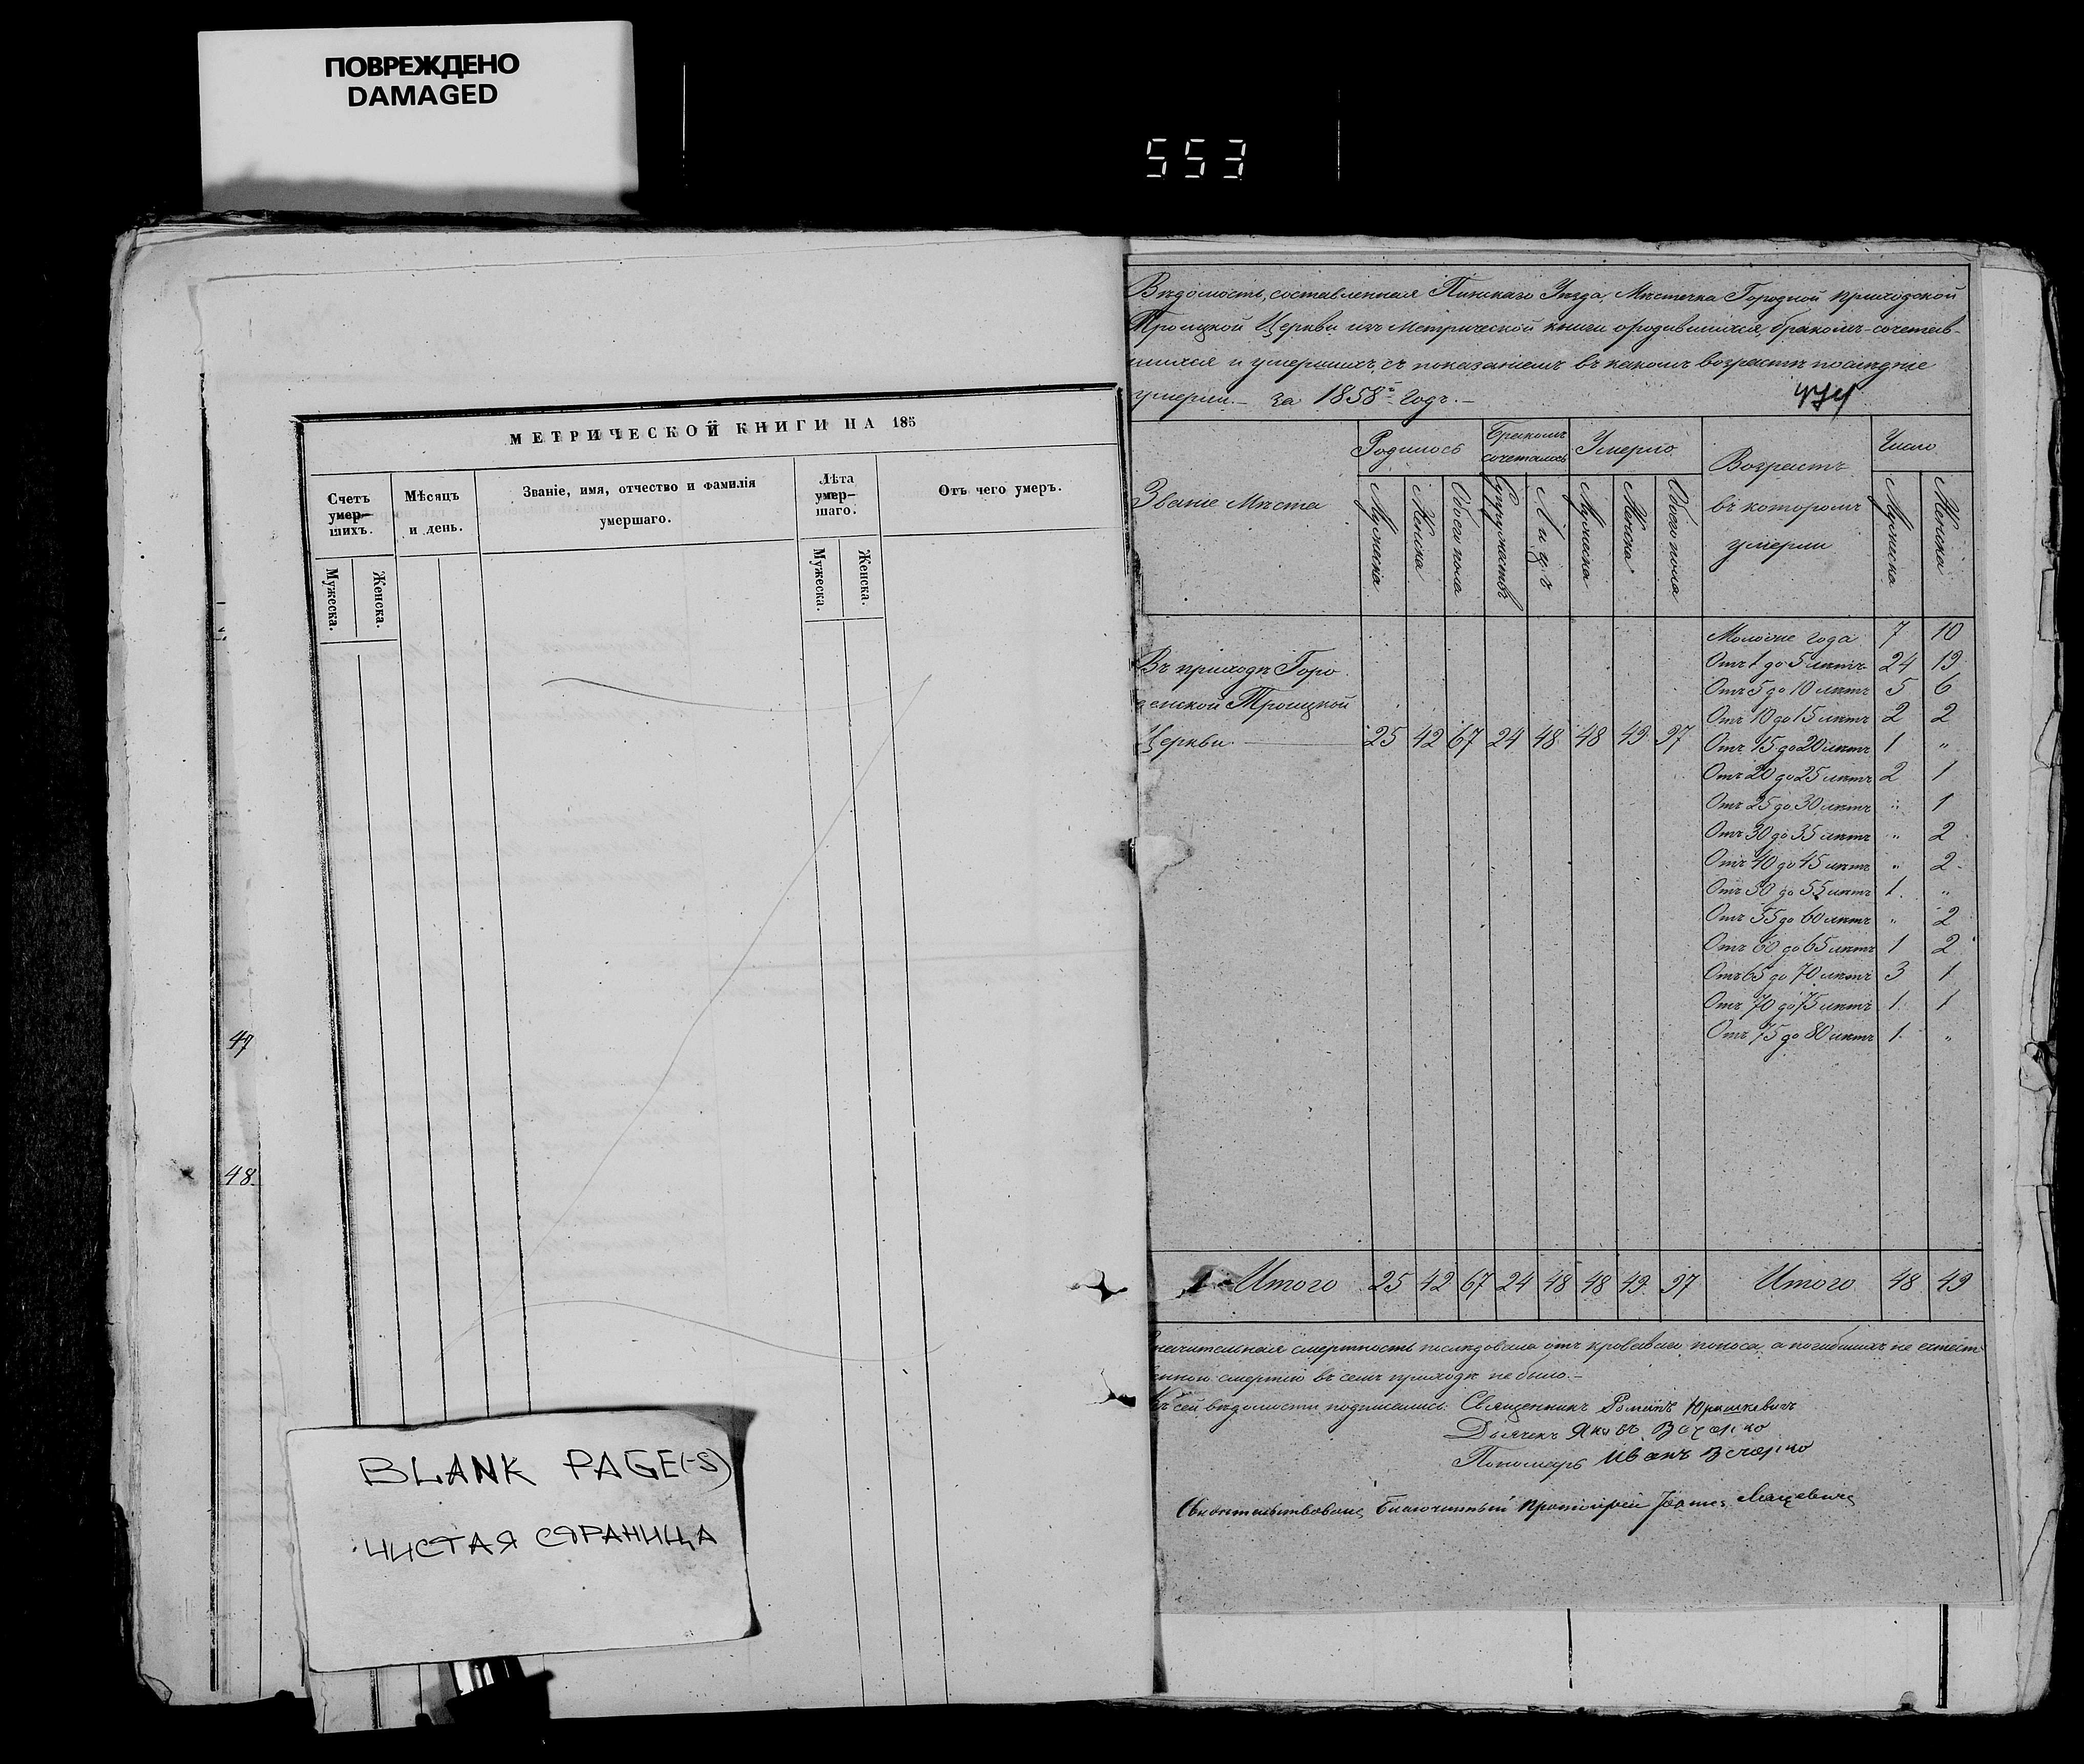 ПОВРЕЖДЕНО
DAMAGED
553
МЕТРИЧЕСКОЙ КНИГИ НА 185
Счетъ умер-шихъ.
Мѣсяцъ и день.
Званіе, имя, отчество и фамилія умершаго.
Лѣта умер-шаго.
Отъ чего умеръ.
Мужеска.
Женска.
Мужеска.
Женска.
47
48.
BLANK PAGE(-S)
ЧИСТАЯ СТРАНИЦА
Вѣдомость, составленная Пинскаго Уѣзда, Мѣстечка Городной приходской
Троицкой Церкви изъ Метрической книги о родившихся, бракомъ-сочетав-
шихся и умершихъ, съ показаніемъ въ какомъ возрастѣ послѣдніе
умерли.- за 1858й годъ.-
Званіе Мѣста
Родилось
Бракомъ сочеталось
Умерло
Возрастъ въ которомъ умерли
Число
Мужеска
Женска
Обоего пола
Супружествъ
Лицъ
Мужеска
Женска
Обоего пола
Мужеска
Женска
Въ приходѣ Горо
денской Троицкой
Церкви. 25 42 67 24 48 48 49 97
Моложе года 7 10
Отъ 1 до 5 лѣтъ 24 19
Отъ 5 до 10 лѣтъ 5 6
Отъ 10 до 15 лѣтъ 2 2
Отъ 15 до 20 лѣтъ 1 "
Отъ 20 до 25 лѣтъ 2 1
Отъ 25 до 30 лѣтъ " 1
Отъ 30 до 35 лѣтъ " 2
Отъ 40 до 45 лѣтъ " 2
Отъ 50 до 55 лѣтъ 1. "
Отъ 55 до 60 лѣтъ " 2
Отъ 60 до 65 лѣтъ 1 2
Отъ 65 до 70 лѣтъ 3 1
Отъ 70 до 75 лѣтъ 1. 1
Отъ 75 до 80 лѣтъ 1. "
Итого 25 42 67 24 48 48 49 97 Итого 48 49
значительная смертность послѣдовала отъ кроваваго поноса, а погибшихъ не естест
енною смертію въ семъ приходѣ не было.-
Къ сей вѣдомости подписались: Священникъ Романъ Юрашкевичъ
Дьячекъ Яковъ
Пономарь Иванъ
Свидѣтельствовалъ Благочинный Протоіерей